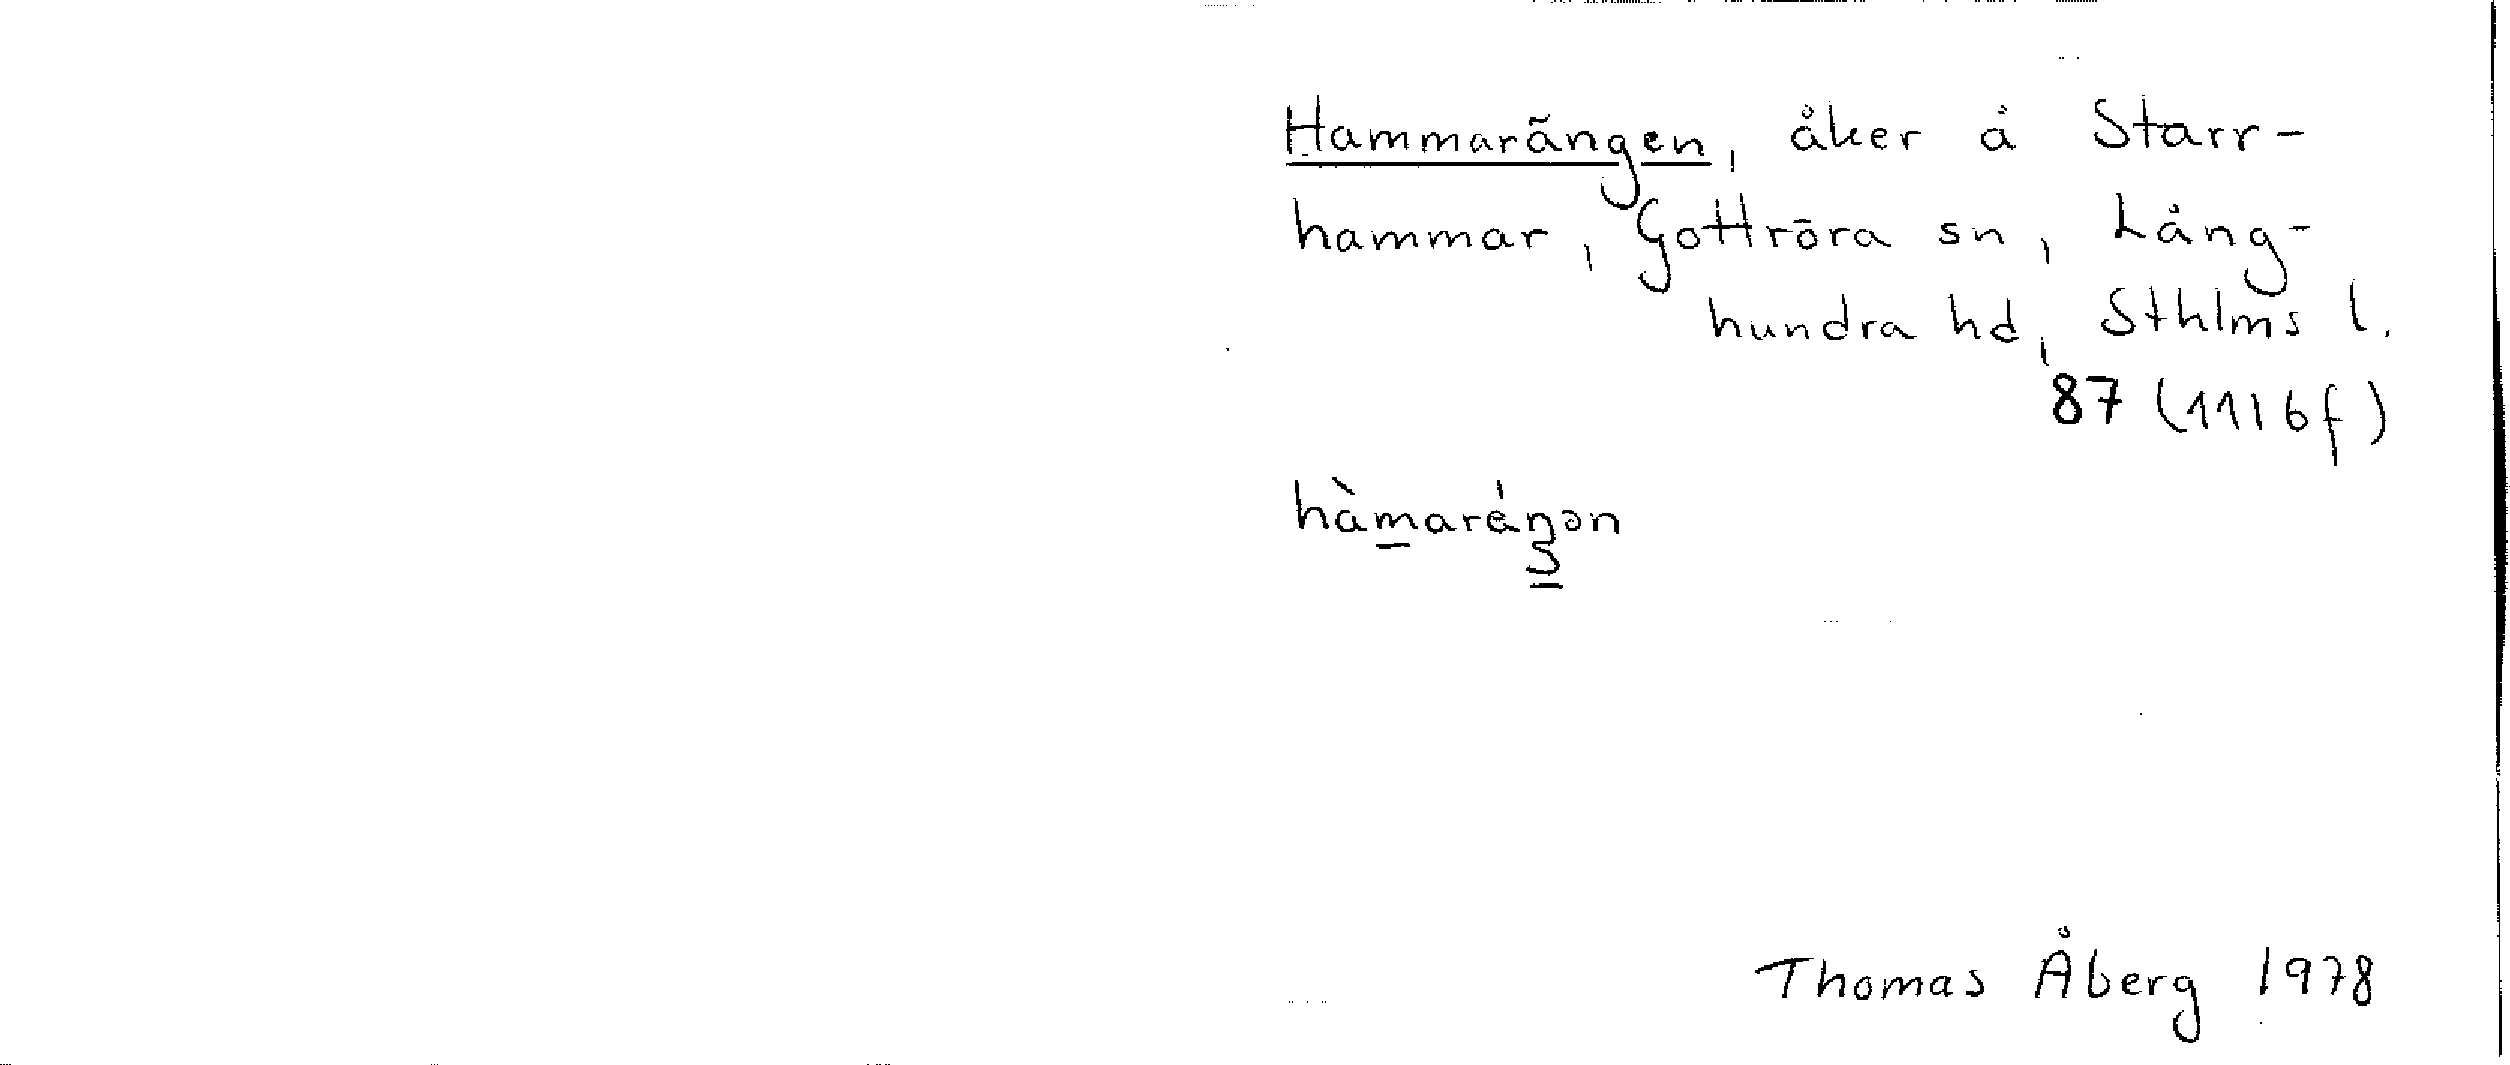 Hammarängen, åker å Starr-
hammar, Gottröra sn, Lång-
hundra hd, Sthlms l.
87 (1116f)
hàmaráŋən
Thomas Åberg 1978